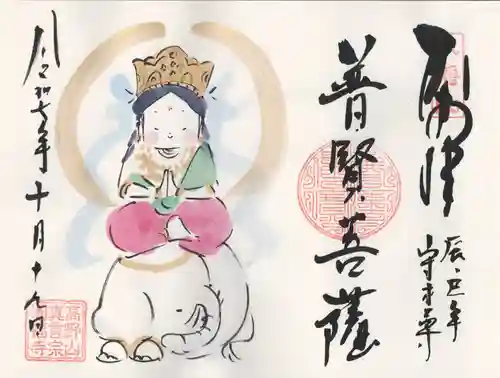 奉拝
辰・巳年
守本尊
普賢菩薩
令和七年十月十九日
高野山
真言宗
寺